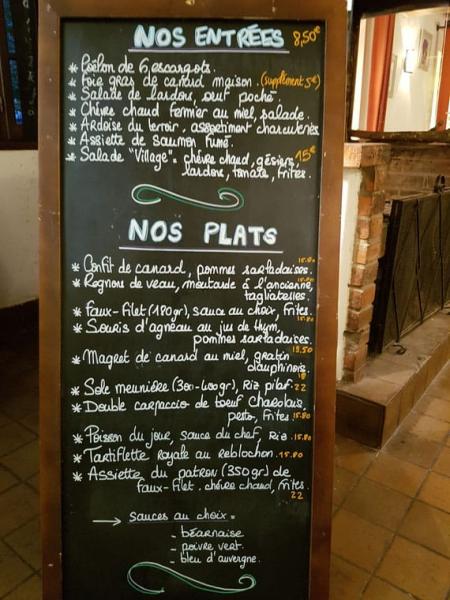 NOS ENTRÉES 8,50€
* Poêlon de 6 escargots.
* Foie gras de canard maison. (supplément 5€)
* Salade de lardons, oeuf poché.
* Chèvre chaud fermier au miel, salade.
* Ardoise du terroir, assortiment charcuteries
* Assiette de saumon fumé.
* Salade "Village": chèvre chaud, gésiers, 15€
lardons, tomate, frites.
NOS PLATS
* Confit de canard, pommes sarladaises. 15.80
* Rognons de veau, moutarde à l'ancienne, 15.80
tagliatelles.
* Faux-filet (180gr), sauce au choix, frites. 15.80
* Souris d'agneau au jus de thym,
pommes sarladaises.
* Magret de canard au miel, gratin
dauphinois.
* Sole meunière (300-400gr), Riz pilaf. 22
* Double carpaccio de boeuf Charolais,
pesto, frites. 15.80
* Poisson du jour, sauce du chef, Riz. 15.80
* Tartiflette royale au reblochon. 15.80
* Assiette du patron (350gr) de
faux-filet. chèvre chaud, frites.
22
→ Sauces au choix:
- béarnaise
- poivre vert.
- bleu d'auvergne.